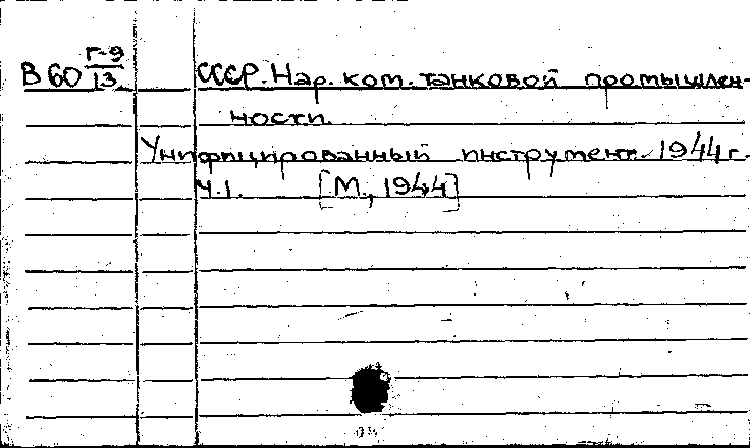 В 60 Г-9/13 СССР. Нар. ком. танковой промышлен-
ности.
Унифицированный инструмент. 1944 г.
Ч.1. [М., 1944]